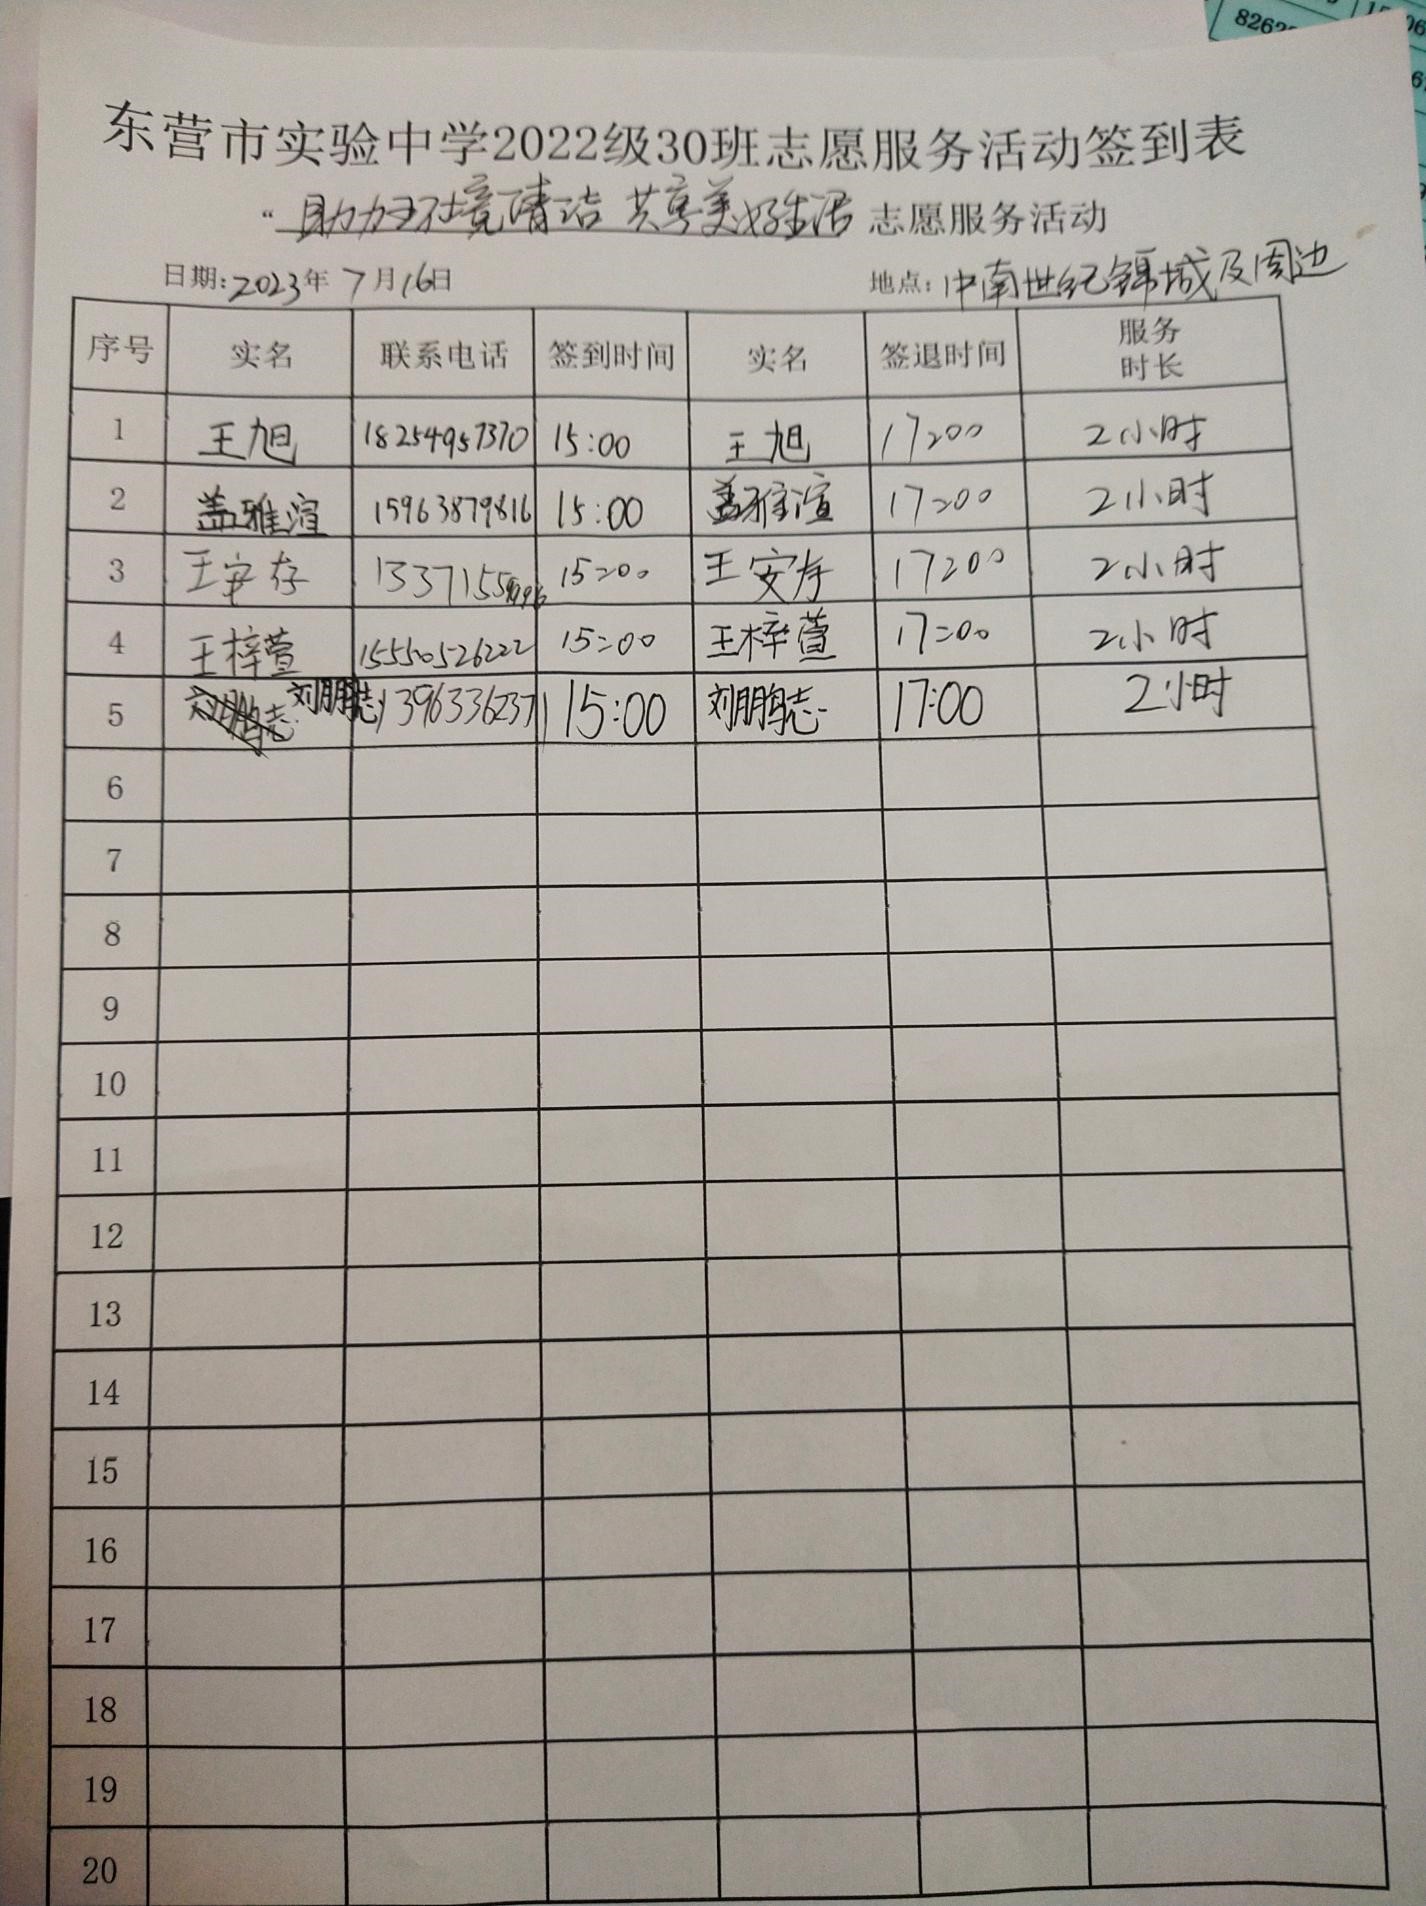 东营市实验中学2022级30班志愿服务活动签到表
“助力环境清洁 共享美好生活 志愿服务活动
日期:2023年7月16日 地点:中南世纪锦城及周边
序号 实名 联系电话 签到时间 实名 签退时间 服务时长
1 王旭 18254957370 15:00 王旭 17:00 2小时
2 盖雅渲 15963879816 15:00 盖雅渲 17:00 2小时
3 王安存 1337155 15:00 王安存 17:00 2小时
4 王梓萱 15550526222 15:00 王梓萱 17:00 2小时
5 刘鹏志 刘鹏志 13963362371 15:00 刘鹏志 17:00 2小时
6
7
8
9
10
11
12
13
14
15
16
17
18
19
20